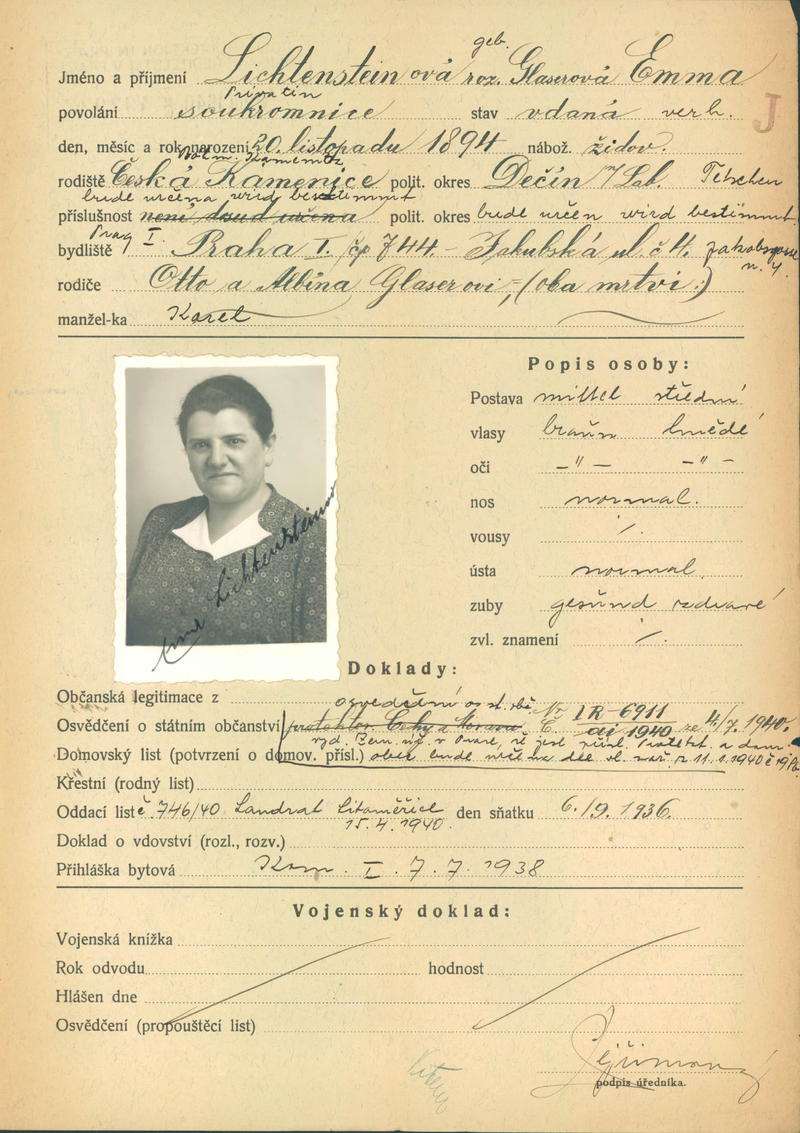 geb.
Jméno a příjmení Lichtensteinová roz. Glaserová Emma
Privatin
povolání soukromnice stav vdaná verh.
J
den, měsíc a rok narození 20. listopadu 1894 nábož. židov.
Böhm. Kamenitz
rodiště Česká Kamenice polit. okres Děčín n/Lab. Tetschen
bude určena wird bestimmt
příslušnost není dosud určena polit. okres bude určen wird bestimmt.
Prag I.
bydliště Praha I. čp 744 - Jakubská ul. č 4. Jakobsgasse
n. 4
rodiče Otto a Albina Glaserovi, (oba mrtvi.)
manžel-ka Karel
Popis osoby:
Postava mittel střední
vlasy braun hnědé
oči -"- -"-
nos normal.
vousy ·/.
ústa normal.
zuby gesund zdravé
zvl. znamení ·/.
Emma Lichtensteinová
Doklady:
Občanská legitimace z
osvědčení o st. obč. Nr IR-6911
Osvědčení o státním občanství protektor. Čechy a Morava Č. ai 1940 ze 4./7. 1940.
vyd. Zem. úř. v Praze, že jest přísl. Protekt. a dom.
Domovský list (potvrzení o domov. přísl.) obec bude určena dle vl. nař. z 11.1.1940 č 19/40
Křestní (rodný list)
Oddací list č. 746/40 Landrat Litoměřice den sňatku 6./9. 1936.
15. 4. 1940.
Doklad o vdovství (rozl., rozv.)
Přihláška bytová Kom. I. 7. 7. 1938
Vojenský doklad:
Vojenská knížka
Rok odvodu hodnost
Hlášen dne
Osvědčení (propouštěcí list)
podpis úředníka.